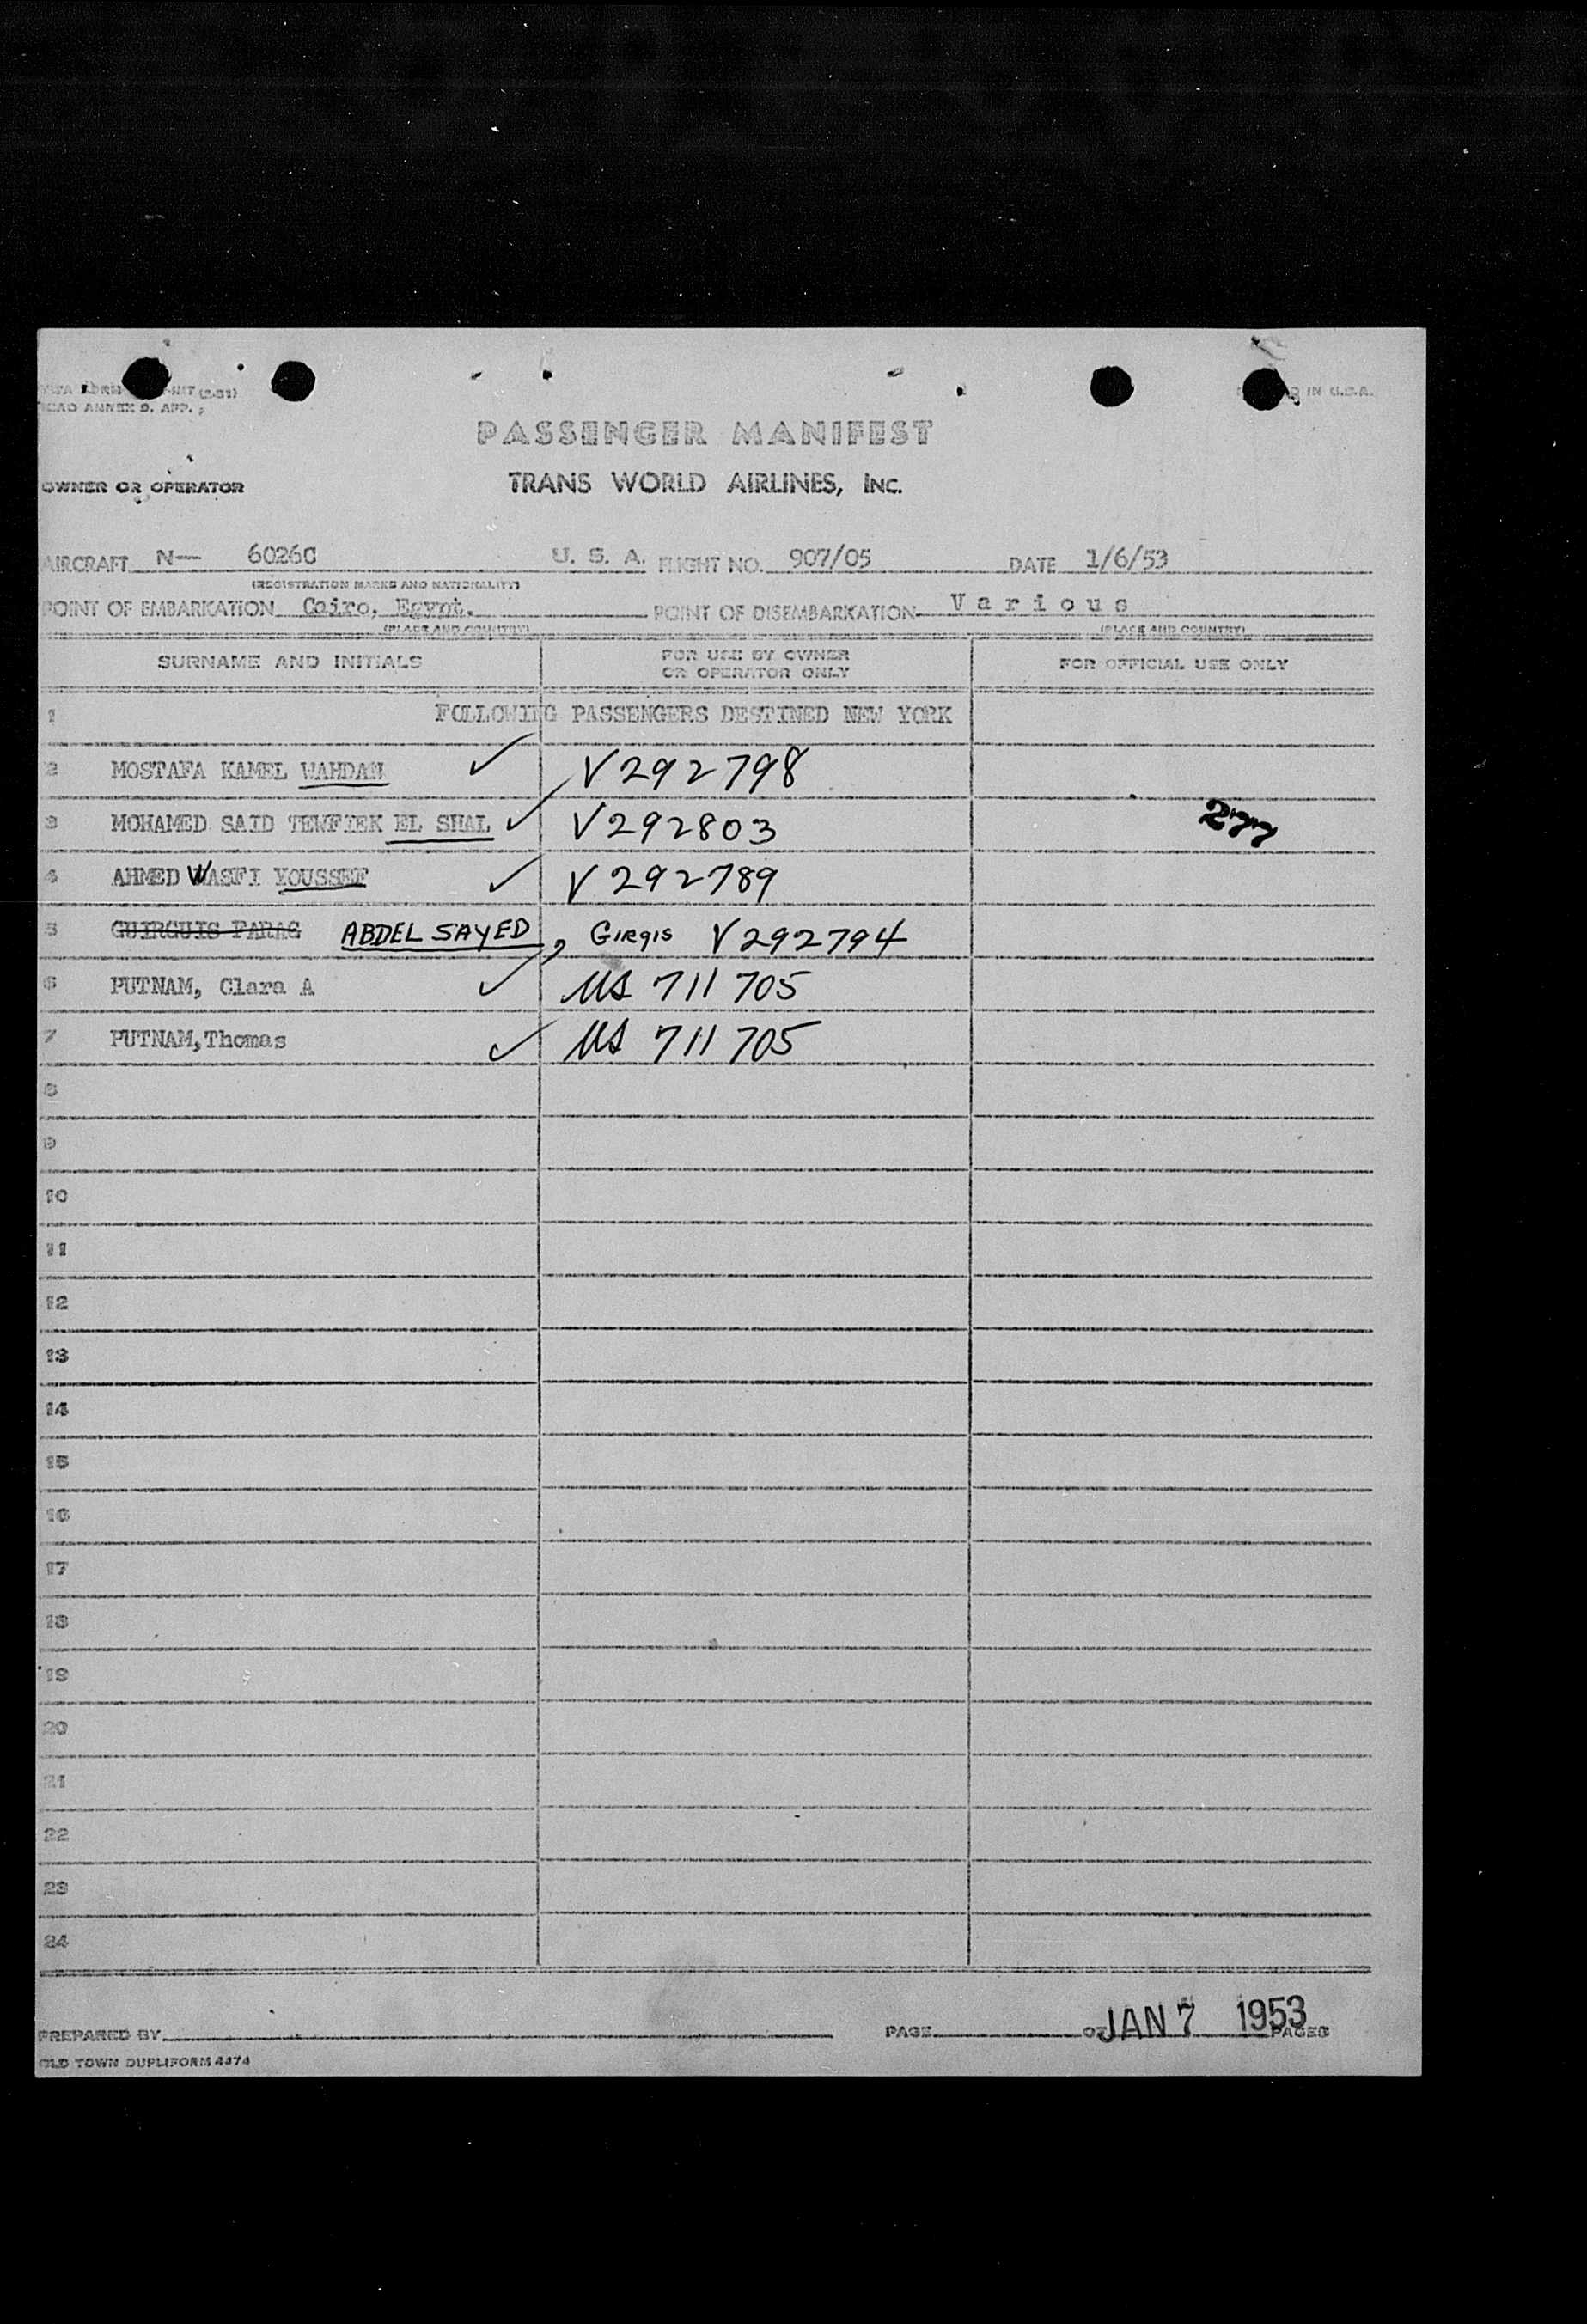 ICAO ANNEX 9. APP.
IN U.S.A.
PASSENGER MANIFEST
OWNER OR OPERATOR TRANS WORLD AIRLINES, INC.
AIRCRAFT N— 6026C U. S. A. FLIGHT NO. 907/05 DATE 1/6/53
(REGISTRATION MARKS AND NATIONALITY)
POINT OF EMBARKATION Cairo, Egypt. POINT OF DISEMBARKATION Various
(PLACE AND COUNTRY) (PLACE AND COUNTRY)
SURNAME AND INITIALS FOR USE BY OWNER OR OPERATOR ONLY FOR OFFICIAL USE ONLY
1 FOLLOWING PASSENGERS DESTINED NEW YORK
2 MOSTAFA KAMEL WAHDAN ✓ V292798
3 MOHAMED SAID TEWFIEK EL SHAL ✓ V292803 277
4 AHMED WASFI YOUSSEF ✓ V292789
5 GUIRGUIS FARAG ABDEL SAYED, Girgis V292794
6 PUTNAM, Clara A ✓ US 711705
7 PUTNAM, Thomas ✓ US 711705
8
9
10
11
12
13
14
15
16
17
18
19
20
21
22
23
24
PREPARED BY PAGE OF PAGES
JAN 7 1953
OLD TOWN DUPLIFORM 4474